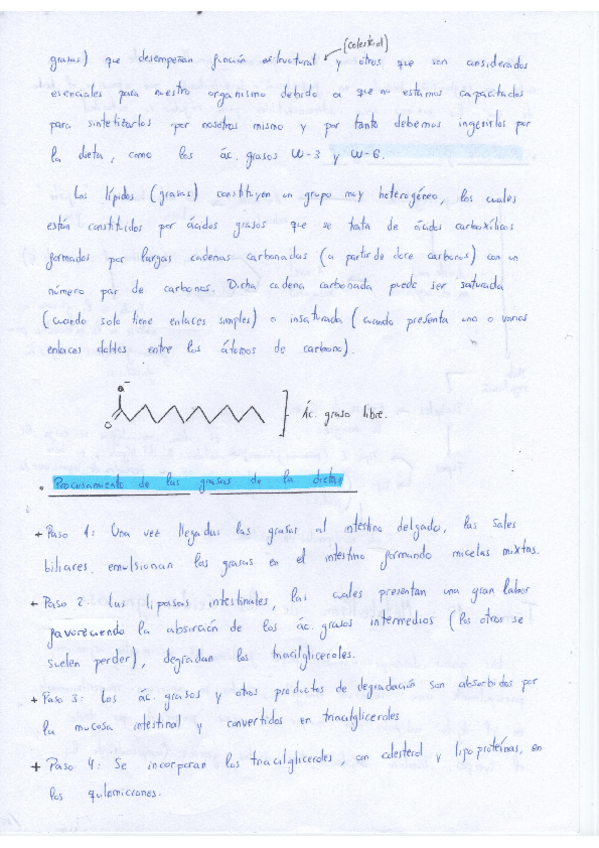 (colesterol)
grasas) que desempeñan función estructural y otros que son considerados
esenciales para nuestro organismo debido a que no estamos capacitados
para sintetizarlos por nosotros mismo y por tanto debemos ingerirlos por
la dieta, como los ác. grasos W-3 y W-6.
Los lípidos (grasas) constituyen un grupo muy heterogéneo, los cuales
están constituidos por ácidos grasos que se trata de ácidos carboxílicos
formados por largas cadenas carbonadas (a partir de doce carbonos) con un
número par de carbonos. Dicha cadena carbonada puede ser saturada
(cuando solo tiene enlaces simples) o insaturada (cuando presenta uno o varios
enlaces dobles entre los átomos de carbono).
O⁻
O
Ác. graso libre.
• Procesamiento de las grasas de la dieta
+ Paso 1: Una vez llegadas las grasas al intestino delgado, las sales
biliares emulsionan las grasas en el intestino formando micelas mixtas.
+ Paso 2: Las lipasas intestinales, las cuales presentan una gran labor
favoreciendo la absorción de los ác. grasos intermedios (los otros se
suelen perder), degradan los triacilgliceroles.
+ Paso 3: Los ác. grasos y otros productos de degradación son absorbidos por
la mucosa intestinal y convertidos en triacilgliceroles
+ Paso 4: Se incorporan los triacilgliceroles, con colesterol y lipoproteínas, en
los quilomicrones.